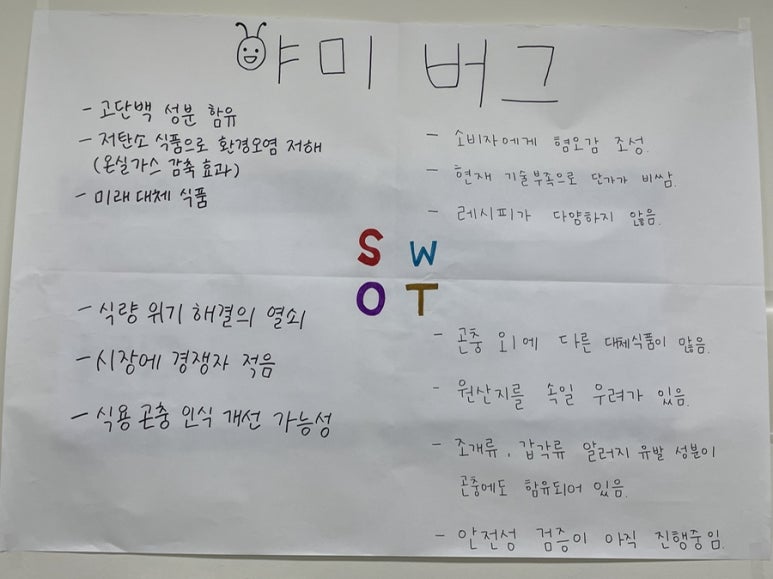 야미 버그
- 고단백 성분 함유
- 저탄소 식품으로 환경오염 저해
(온실가스 감축 효과)
- 미래 대체 식품
- 소비자에게 혐오감 조성.
- 현재 기술부족으로 단가가 비쌈.
- 레시피가 다양하지 않음.
S W
O T
- 식량 위기 해결의 열쇠
- 시장에 경쟁자 적음
- 식용 곤충 인식 개선 가능성
- 곤충 외에 다른 대체식품이 많음.
- 원산지를 속일 우려가 있음.
- 조개류, 갑각류 알러지 유발 성분이
곤충에도 함유되어 있음.
- 안전성 검증이 아직 진행중임.